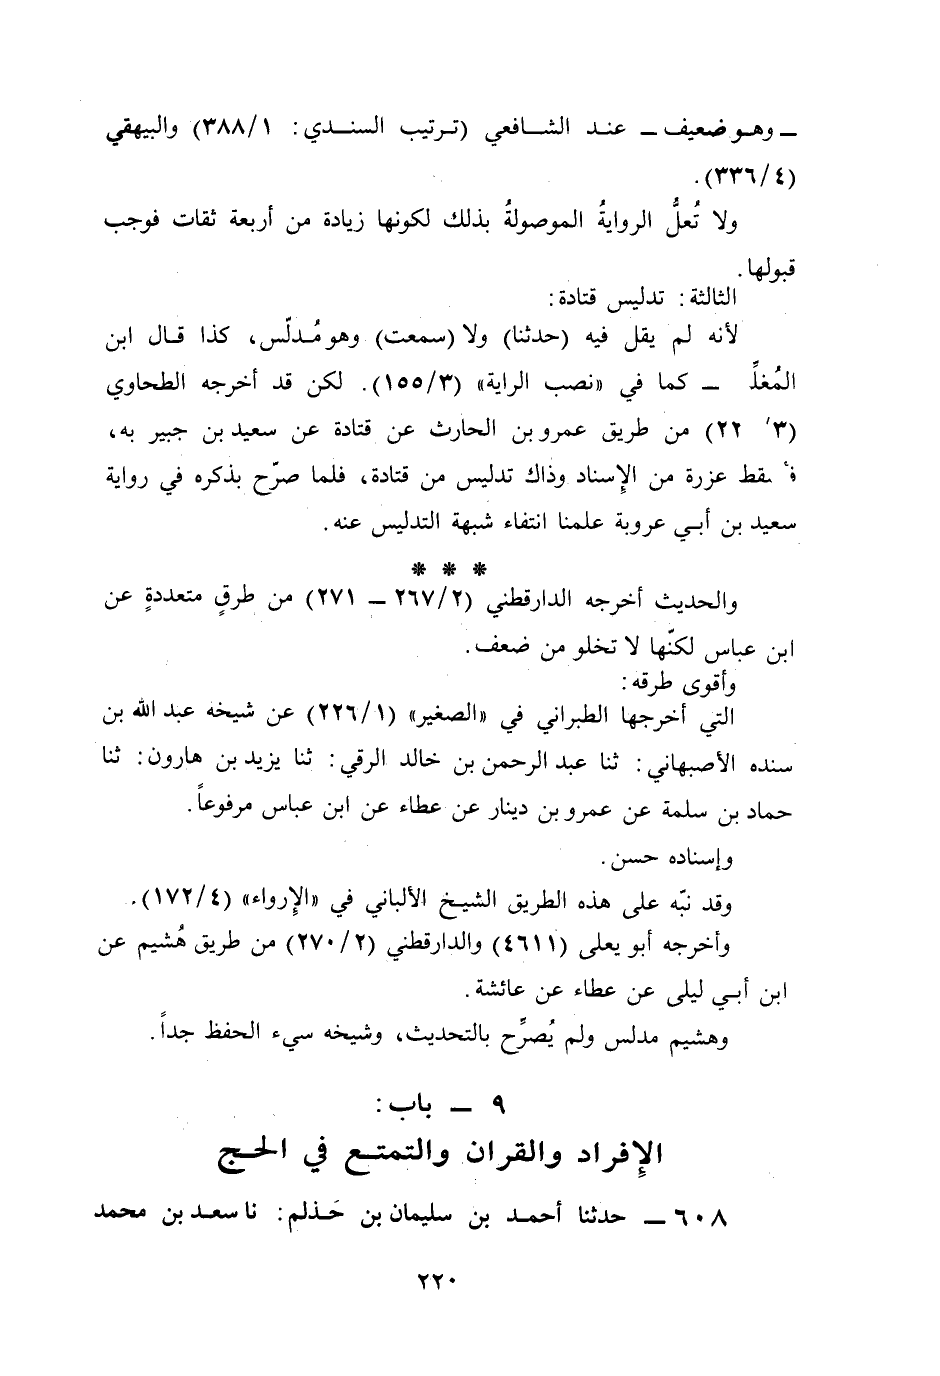 ــ وهــو ضعيف ــ عنـد الشــافعي (تـرتيب السنــدي: ٣٨٨/١) والبيهقي
(٣٣٦/٤).
ولا تُعلُّ الروايةُ الموصولةُ بذلك لكونها زيادة من أربعة ثقات فوجب
قبولها.
الثالثة: تدليس قتادة:
لأنه لم يقل فيه (حدثنا) ولا (سمعت) وهو مُـدلّس، كذا قـال ابن
المُغلِّ ــ كما في «نصب الراية» (١٥٥/٣). لكن قد أخرجه الطحاوي
(٣/ ٢٢) من طريق عمرو بن الحارث عن قتادة عن سعيد بن جبير به،
فأسقط عزرة من الإسناد وذاك تدليس من قتادة، فلما صرّح بذكره في رواية
سعيد بن أبـي عروبة علمنا انتفاء شبهة التدليس عنه.
* * *
والحديث أخرجه الدارقطني (٢٦٧/٢ ــ ٢٧١) من طرقٍ متعددةٍ عن
ابن عباس لكنّها لا تخلو من ضعف.
وأقوى طرقه:
التي أخرجها الطبراني في «الصغير» (٢٢٦/١) عن شيخه عبد الله بن
سنده الأصبهاني: ثنا عبد الرحمن بن خالد الرقي: ثنا يزيد بن هارون: ثنا
حماد بن سلمة عن عمرو بن دينار عن عطاء عن ابن عباس مرفوعاً.
وإسناده حسن.
وقد نبّه على هذه الطريق الشيخ الألباني في «الإرواء» (١٧٢/٤).
وأخرجه أبو يعلى (٤٦١١) والدارقطني (٢٧٠/٢) من طريق هُشيم عن
ابن أبـي ليلى عن عطاء عن عائشة.
وهشيم مدلس ولم يُصرِّح بالتحديث، وشيخه سيء الحفظ جداً.
٩ ــ باب:
الإفراد والقران والتمتـع في الحـج
٦٠٨ ــ حدثنا أحمـد بن سليمان بن حَـذلم: نا سعـد بن محمد
٢٢٠